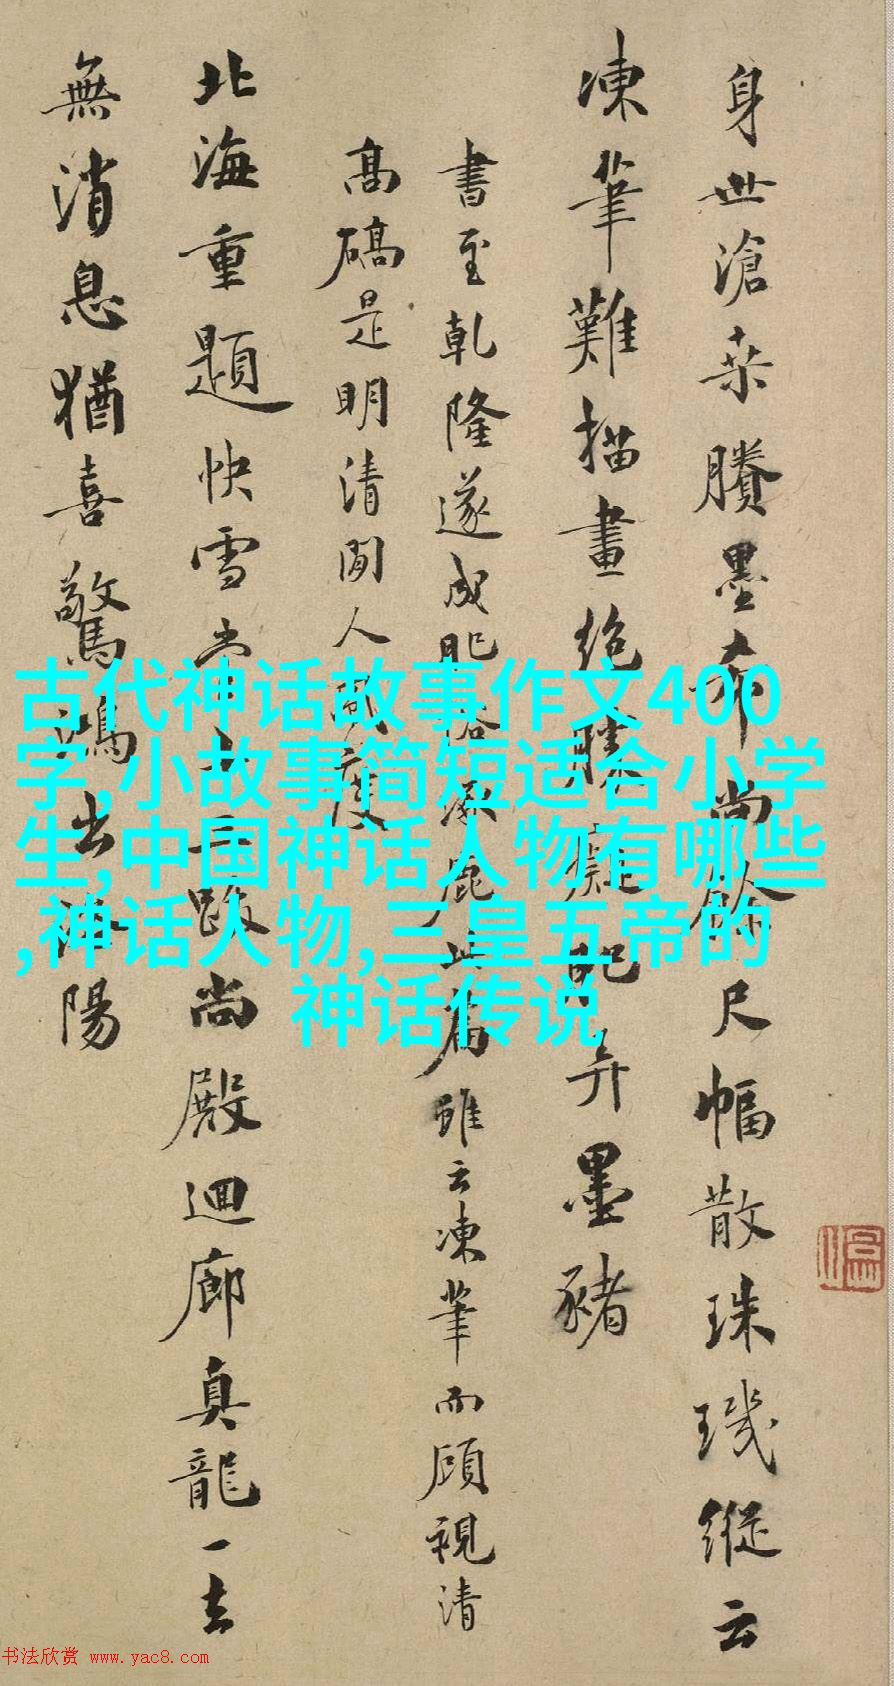 身世滄桑賸墨本尚餘尺幅散珠璣縱云
凍筆難描畫絶勝癡肥弄墨豬
書至乾隆遂成肥俗惡此篇雖云凍筆而顧視清
高磆是明清間人風度
北海重題快雪堂 殿尚殿迴廊真龍一去
無消息猶喜驚鴻出洛陽
古代神话故事作文400
字,小故事简短适合小学
生,中国神话人物有哪些
,神话人物,三皇五帝的
神话传说
书法欣赏 www.yac8.com